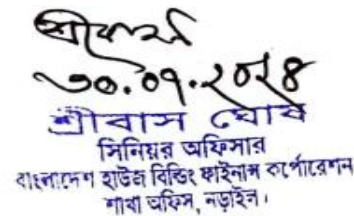 শ্রীবাস
৩০.০৭.২০২৪
শ্রীবাস ঘোষ
সিনিয়র অফিসার
বাংলাদেশ হাউজ বিল্ডিং ফাইনান্স কর্পোরেশন
শাখা অফিস, নড়াইল।